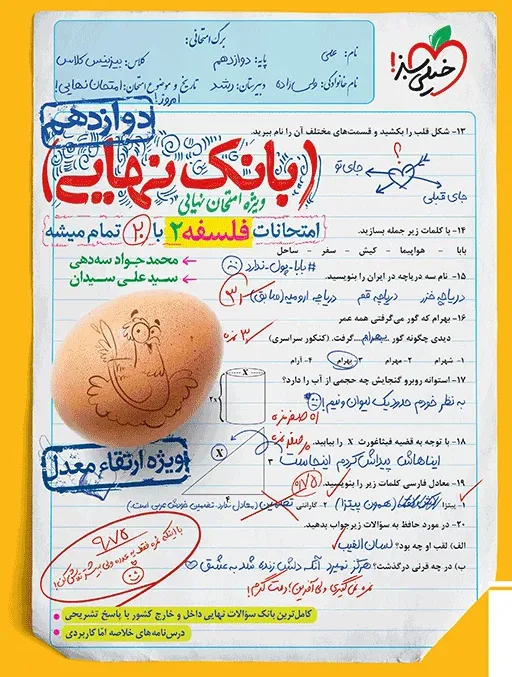 برگ امتحانی:
نام: علی
پایه: دوازدهم
کلاس: بیزینس کلاس
نام خانوادگی: ولی زاده
دبیرستان: رشد
تاریخ و موضوع امتحان: امتحان نهایی!
امروز!
خیلی سبز!
دوازدهم
(بانک نهایی)
ویژه امتحان نهایی
امتحانات فلسفه ۲ با ۲۰ تمام میشه
محمدجواد سه‌دهی
سیدعلی سیدان
ویژه ارتقاء معدل
۱۳- شکل قلب را بکشید و قسمت‌های مختلف آن را نام ببرید.
؟
جای تو
جای قبلی
۱۴- با کلمات زیر جمله بسازید.
بابا - هواپیما - کیش - سفر - ساحل
#بابا-پول-ندارد
۱۵- نام سه دریاچه در ایران را بنویسید.
دریاچه خزر دریاچه قم دریاچه ارومیه (سابق)
۱۶- بهرام که گور می‌گرفتی همه عمر
دیدی چگونه گور بهرام گرفت. (کنکور سراسری)
۱- شهرام ۲- مهرام ۳- بهرام ۴- آرام
۱۷- استوانه روبرو گنجایش چه حجمی از آب را دارد؟
به نظر خودم حدود یک لیوان و نیم!
X
۱۸- با توجه به قضیه فیثاغورث X را بیابید.
ایناهاش پیداش کردم اینجاست
X
۳
۴
۱۹- معادل فارسی کلمات زیر را بنویسید.
۱- پیتزا (همون پیتزا) ۲- گارانتی تضمین (معادل ندارد. تضمین خودش عربی است.)
۲۰- در مورد حافظ به سؤالات زیر جواب بدهید.
الف) لقب او چه بود؟ لسان الغیب
ب) در چه قرنی درگذشت؟ هرگز نمیرد آنکه دلش زنده شد به عشق
نمره نمی‌گیری ولی آفرین! دمت گرم!
کامل‌ترین بانک سؤالات نهایی داخل و خارج کشور با پاسخ تشریحی
درس‌نامه‌های خلاصه اما کاربردی